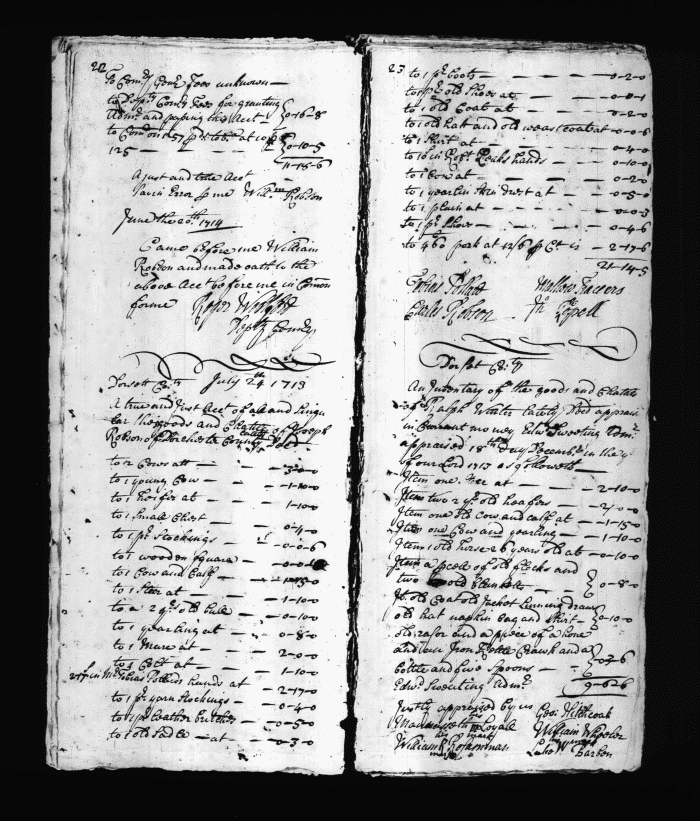 22
To Comry Genll Fees unknown —
to Depty Comry Fees for granting
Admr and passing this Acct } 0-16-8
to Comons 57 pd tobo at 10 p Ct } 0-10-5
125 —
11-15-6
A just and true Acct
Saveing Error p me Willm Robson
June the 20th 1714
Came before me William
Robson and made oath to the
above Acct before me in Comon
forme
Depty Comry
Dorsett Coty July 24th 1713
A true and Just Acct of all and Singu
lar the goods and Chattles of Joseph
Robson of Dorchester County Decd
to 2 Cows att — 3-0-0
to 1 young Cow — 1-10-0
to 1 heifer at — 1-10-0
to 1 Small Chest — 0-4-0
to 1 pr Stockings — 0-0-6
to 1 wooden Square — 0-0-6
to 1 Cow and Calf — 1-15-0
to 1 Steer at — 1-10-0
to a 2 yr old bull — 1-0-0
to 1 yearling at — 0-8-0
to 1 Mare at — 2-0-0
to 1 Colt at — 1-10-0
in Mr Tobias Pollards hands at — 2-17-0
to 1 pr yarn Stockings — 0-4-0
to 1 pr Leather britches — 0-5-0
to 1 old Sadle — at — 0-3-0
23
to 1 pr boots — 0-2-0
to 1 pr old Shoes at — 0-0-1
to 1 old Coat at — 0-2-0
to 1 old hat and old wearscoat at — 0-0-6
to 1 Shirt at — 0-4-0
to 16 in Robt hands — 0-10-0
to 1 Cow at — 0-2-0
to 1 yearlin at — 0-5-0
to 1 at — 0-0-3
to 1 pr Shoes — 0-4-6
to 460 pork at 12/6 p Ct is — 2-17-6
21-14-5
Tobias Pollard
Charles Robson Jno
Dorset Coty
An Inventary of the goods and Chattles
of Ralph Wester Lately Decd appraisd
in Currant money Edwd Sweeting Admr
appraised 18th day Decembr in the yr
of our Lord 1713 as followeth
Item one at — 2-10-0
Item two 2 yr old heafors — 2-0-0
Item one old Cow and calf at — 1-15-0
Item one Cow and yearling — 1-10-0
Item 1 old horse 26 years old at — 0-10-0
Item a peece of old flocks and
two old blanketts } 0-8-0
It old Coat old Jacket Linning drawrs
old hat napkin bag and shirt } 0-10-0
old rasor and a piece of a hone
and an Iron Kettle and a
bottle and five Spoons } 0-3-6
Edwd Sweeting Admr 9-6-6
Justly appraised by us Geo: Hithcoat
his mark William Wheeler
William R his mark
mark Barbon